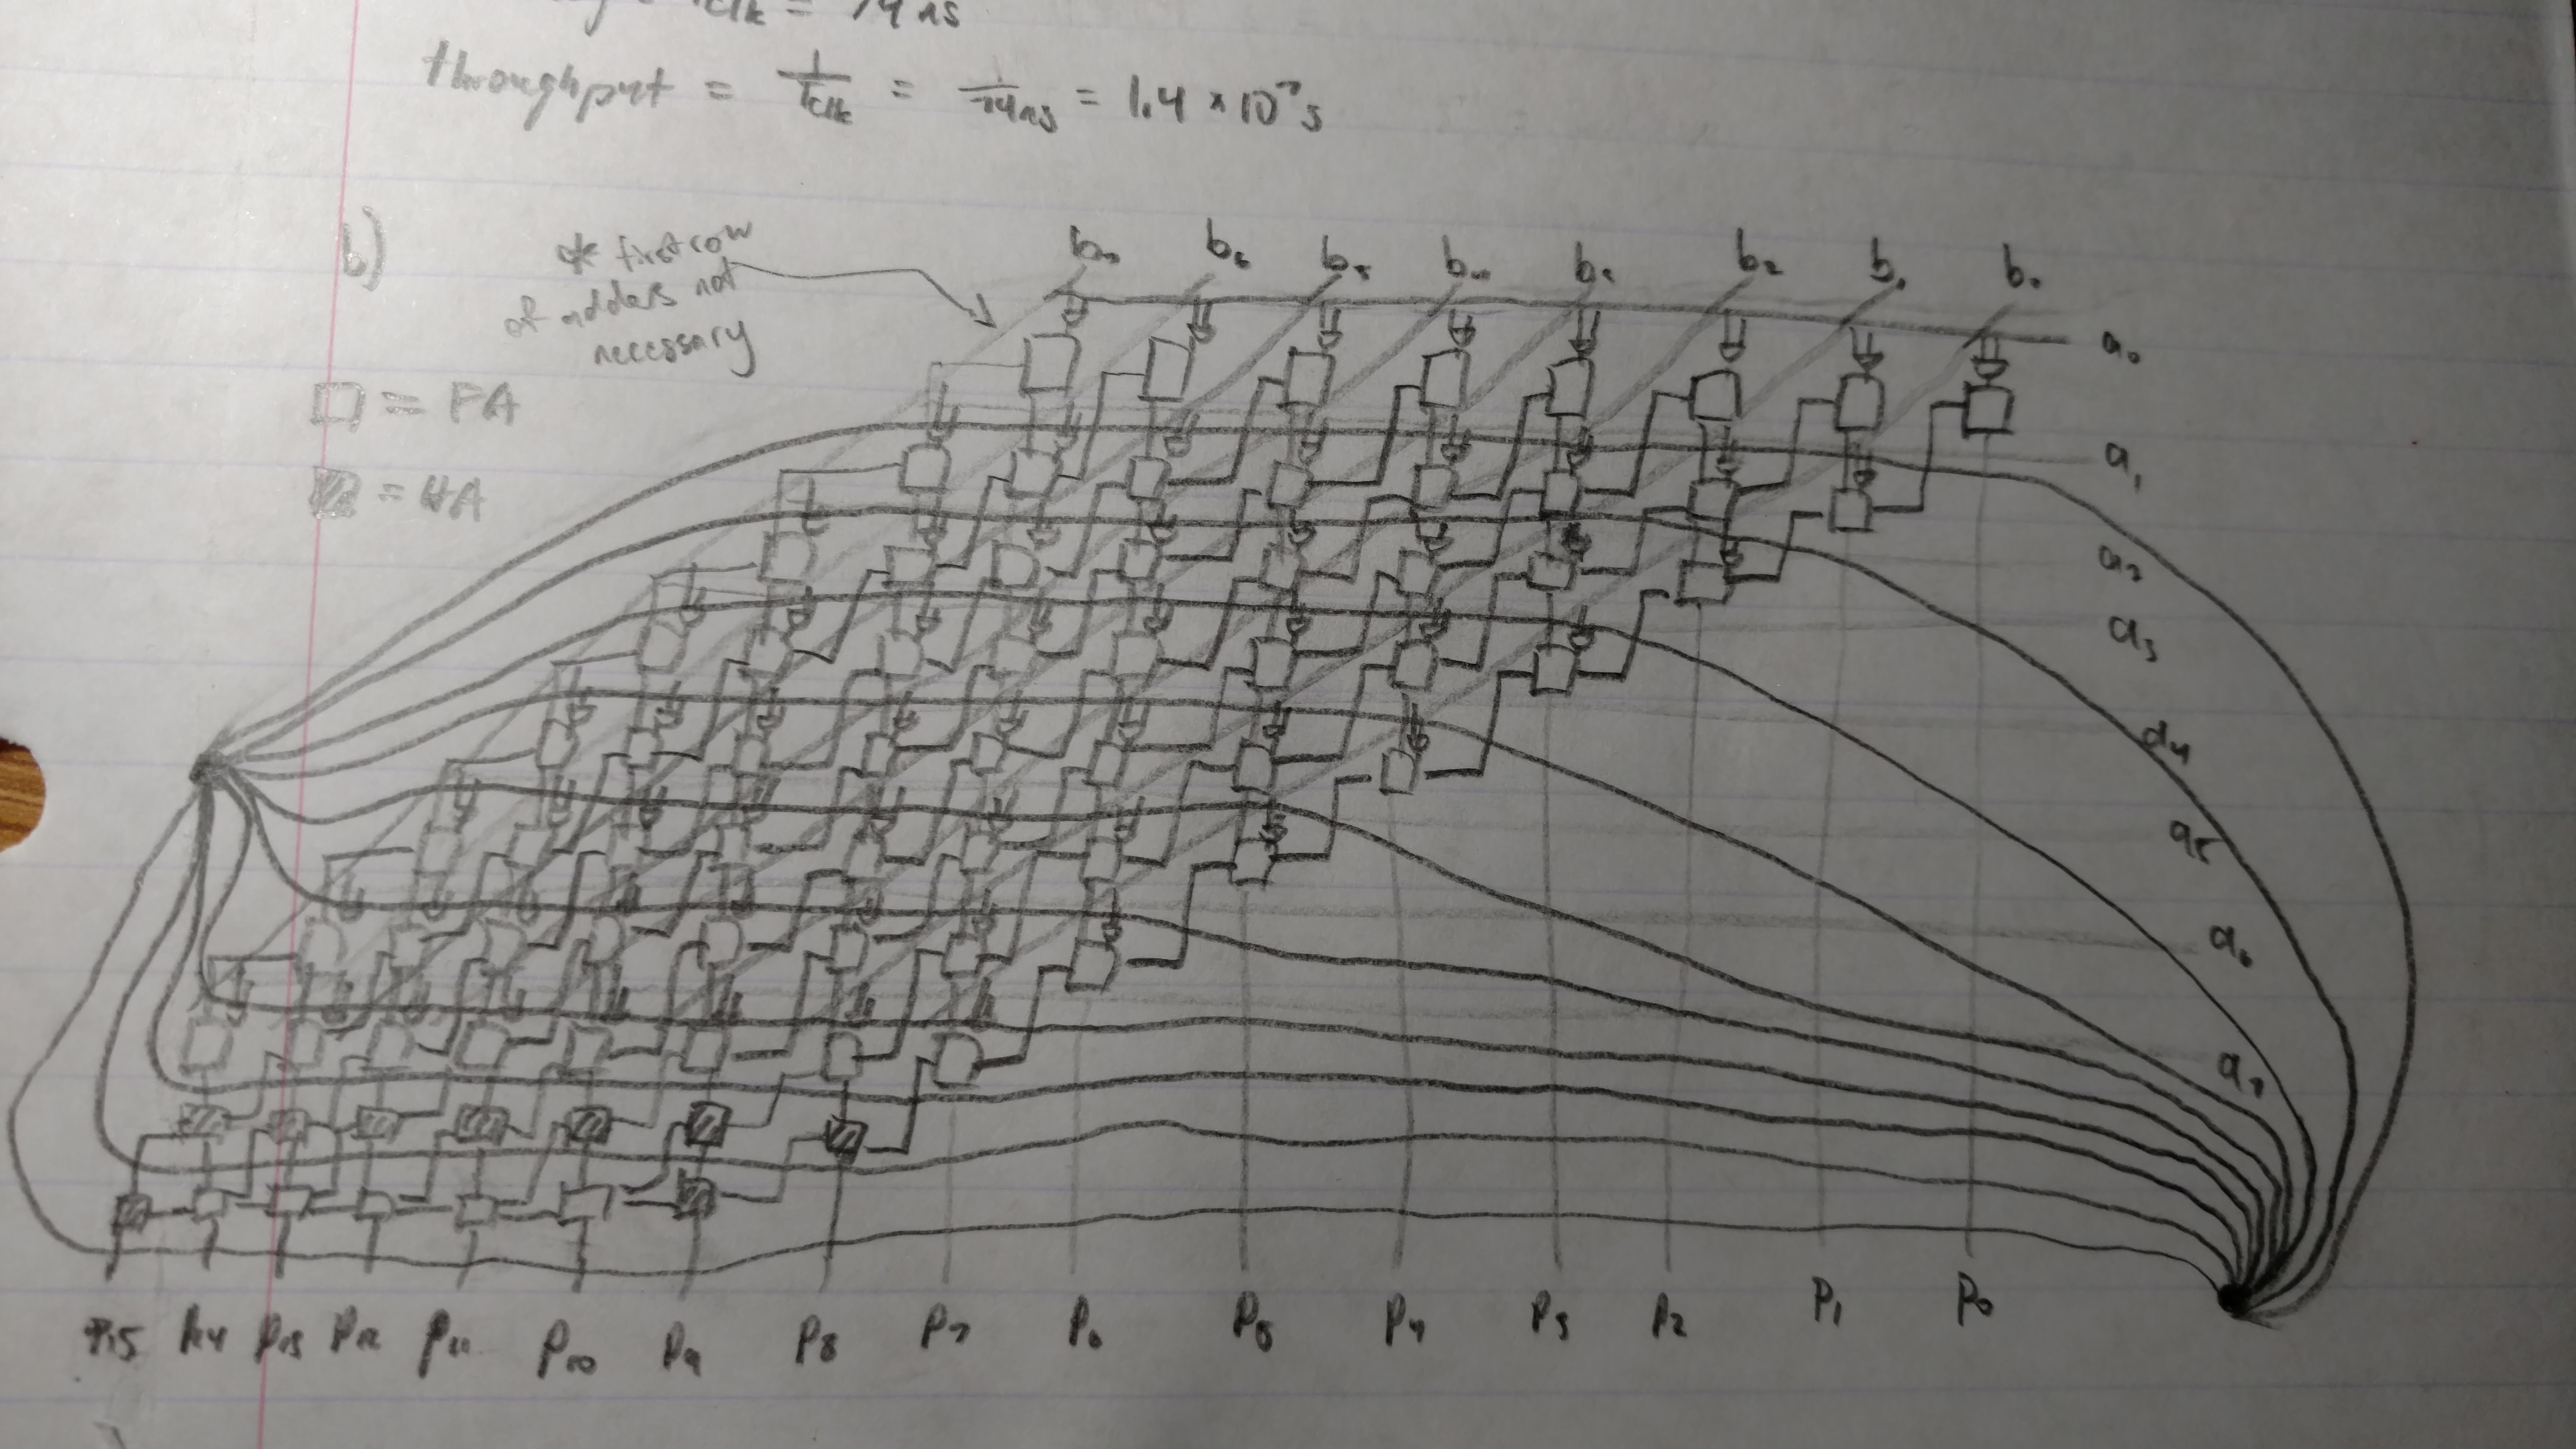 T_clk = 74 ns
throughput = 1/T_clk = 1/74ns = 1.4 × 10⁷ s
b)
* first row
of adders not
necessary
□ = FA
▨ = HA
b₇ b₆ b₅ b₄ b₃ b₂ b₁ b₀
a₀
a₁
a₂
a₃
a₄
a₅
a₆
a₇
P₁₅ P₁₄ P₁₃ P₁₂ P₁₁ P₁₀ P₉ P₈ P₇ P₆ P₅ P₄ P₃ P₂ P₁ P₀